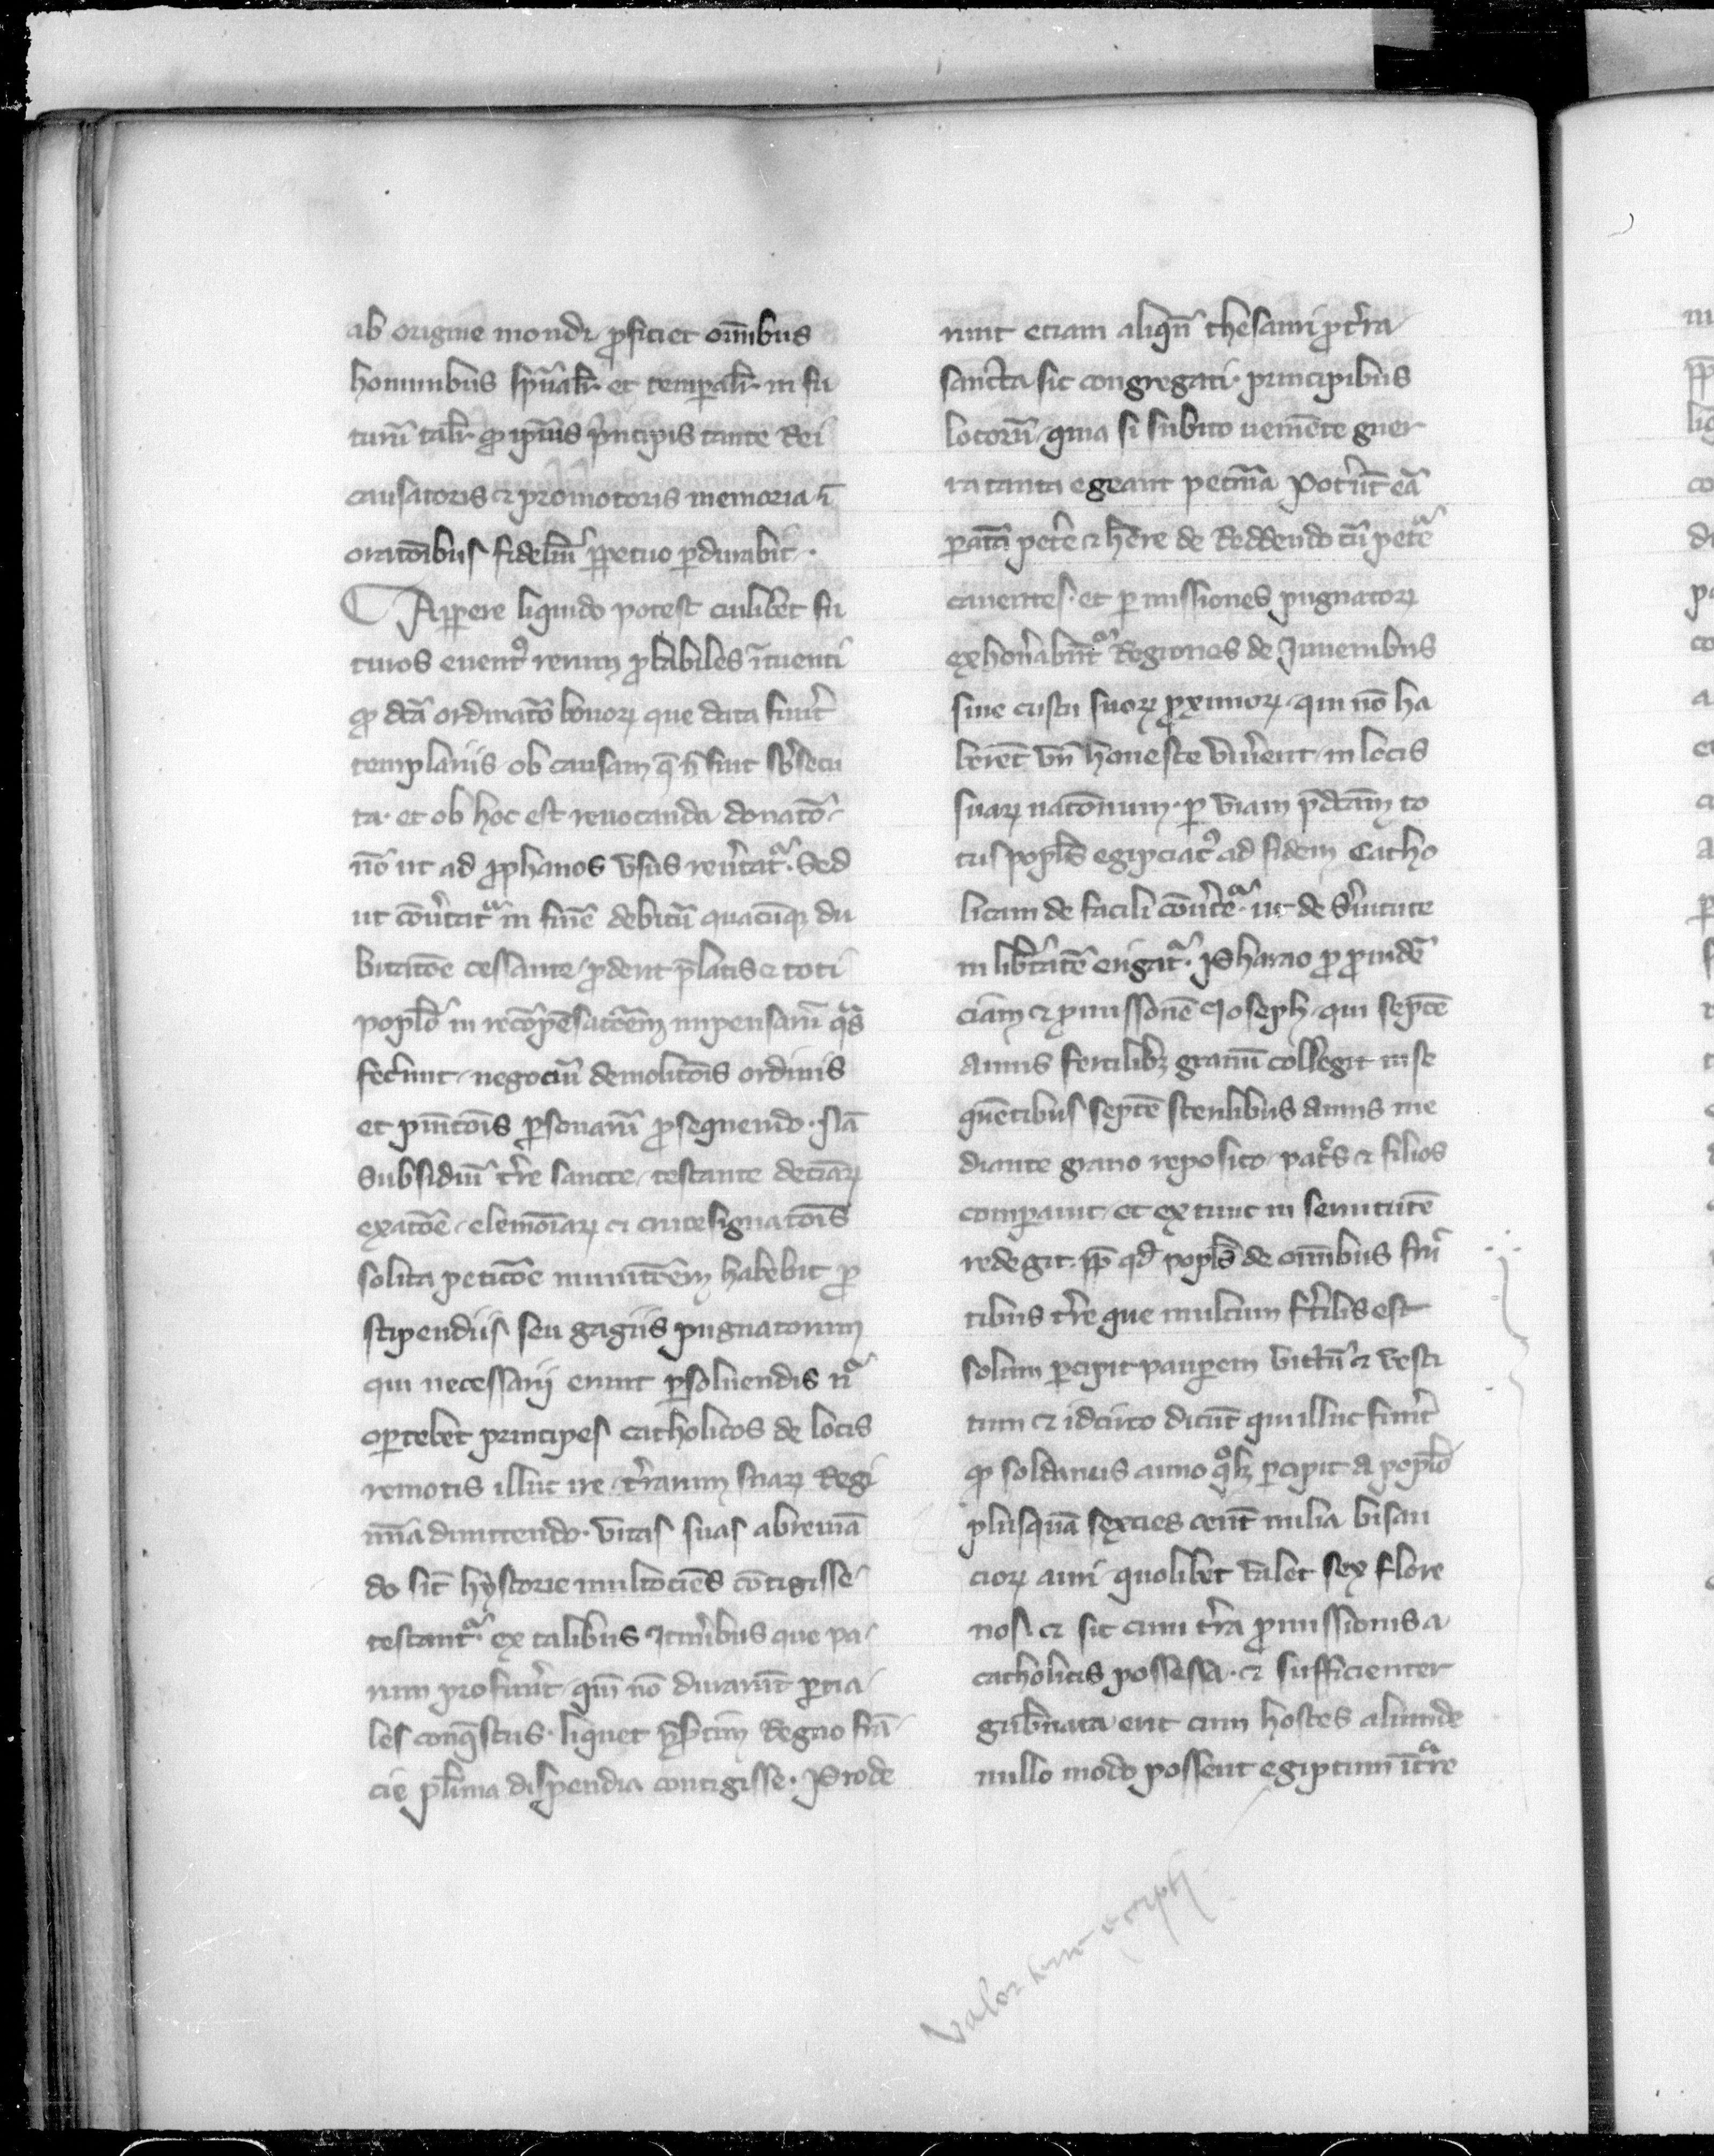 ab origine mondi ꝓficiet om̄ibus
hominibus spūalr̄· et tempalr̄· in fu
turū talr̄· ꝙ ip̄ius p̄ncipis tante Rei
causatoris ⁊ promotoris memoria ī
oratōibus fideliū ꝑpetuo ꝑdurabit·
Apꝑere liquido potest cuilibet fu
turos euentꝰ rerum ꝓbabiles ītuenti
ꝙ dcā ordinatō bonoꝝ que data fuer̄t
templariis ob causam q̄ n̄ fuit s̄bsecu
ta· et ob hoc est reuocanda donatō
nō ut ad ꝓphanos vsus reu̓tat᷑· Sed
ut cōu̓tat᷑ in finē debitū quacūqꝫ du
bitatōe cessante ꝓdent p̄latis ⁊ toti
popl̄o in recōpēsatōem impensarū q̄s
fecerunt negociū demolitōis ordinis
et punitōis ꝑsonarū ꝓsequendo· Nā
Subsidiū tr̄re sancte testante deciaꝝ
exatōe elemōīaꝝ ⁊ crucesignatōis
solita petitōe munitōem habebit ꝓ
stipendiis seu gagiis pugnatorum
qui necessarij erunt ꝑsoluendis nō
oꝑtebet principes catholicos de locis
remotis illuc ire tr̄rarum suaꝝ Regi
mīa dimittendo· vitas suas abreuiā
do sic̄ hystorie multociēs cōtigisse
testant᷑· ex talibus Itineribus que pa
rum profuer̄t qm̄ nō durarūt ꝑcia
les conq̄stus· liquet p̄sertim Regno frā
cie pl̄ima dispendia contigisse· Prode
runt etiam aliqn̄ thesauri ꝓ tr̄ra
sancta sic congregati· principibus
locorū quia si subito uemēte guer
ra tanta egeant pecūia Poterūt eā
ꝑatā petere ⁊ hēre de Reddendo cū petet᷑
cauentes· et ꝑ missiones pugnatoꝝ
exhonerabūt᷑ Regiones de Juuenibus
sine custu suoꝝ ꝓximoꝝ qui nō ha
berēt vn̄ honeste viuerent in locis
suaꝝ natōnum· ꝑ viam p̄dcām to
tus popl̄s egipciacꝰ ad fidem Catho
licam de facili cōu̓tet᷑· ut de s̓uitute
in lib̓tatē erigat᷑· Pharao ꝓ ꝓuidē
ciam ⁊ ꝓuissionē Joseph qui septē
annis fertilibꝫ granū collegit in se
quētibus septē sterilibus annis me
diante grano reposito pat̓s ⁊ filios
comparauit et ex tunc in seruitutē
redegit· ꝓp̄ qd̓ popl̄s de om̄ibus fru
tibus tr̄re que multum fertilis est
solum ꝑcipit pauꝑem victū ⁊ vesti
tum ⁊ idcirco dicūt qui illuc fuer̄t
ꝙ soldanus anno qᵒlꝫ ꝑcipit a popl̄o
plusquā sexcies centū milia bisan
cioꝝ auri quolibet valet sex flore
nos ⁊ sic cum tr̄ra ꝓmissionis a
catholicis possessa· ⁊ sufficienter
gub̓nata erit cum hostes aliunde
nullo modo possent egiptum ītrare
valor terre egipti